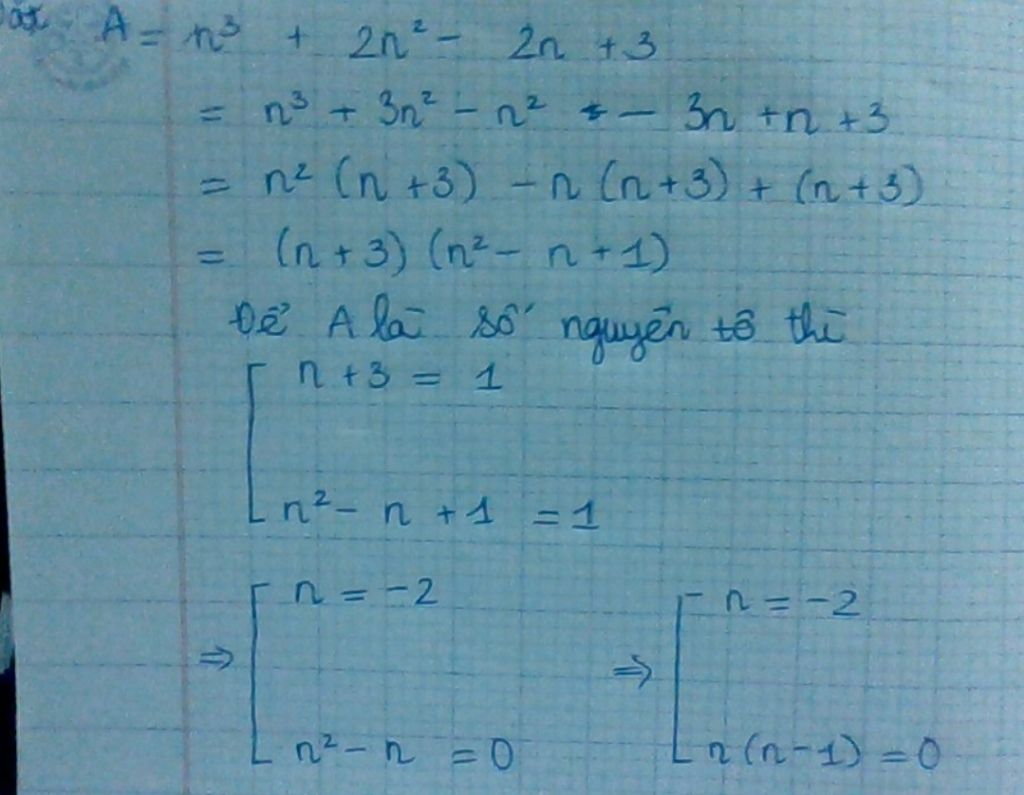 Đặt A = n³ + 2n² - 2n + 3
= n³ + 3n² - n² - 3n + n + 3
= n² (n + 3) - n (n + 3) + (n + 3)
= (n + 3) (n² - n + 1)
Để A là số nguyên tố thì
[ n + 3 = 1
n² - n + 1 = 1
⇒ [ n = -2 ⇒ [ n = -2
n² - n = 0 n (n - 1) = 0